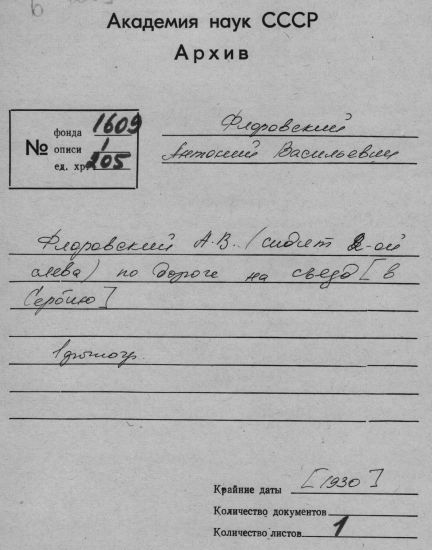 Академия наук СССР
Архив
№
фонда 1609
описи 1
ед. хр. 205
Флоровский
Антоний Васильевич
Флоровский А.В. (сидит 2-ой
слева) по дороге на съезд [в
Сербию]
1 фотогр.
Крайние даты [1930]
Количество документов
Количество листов 1